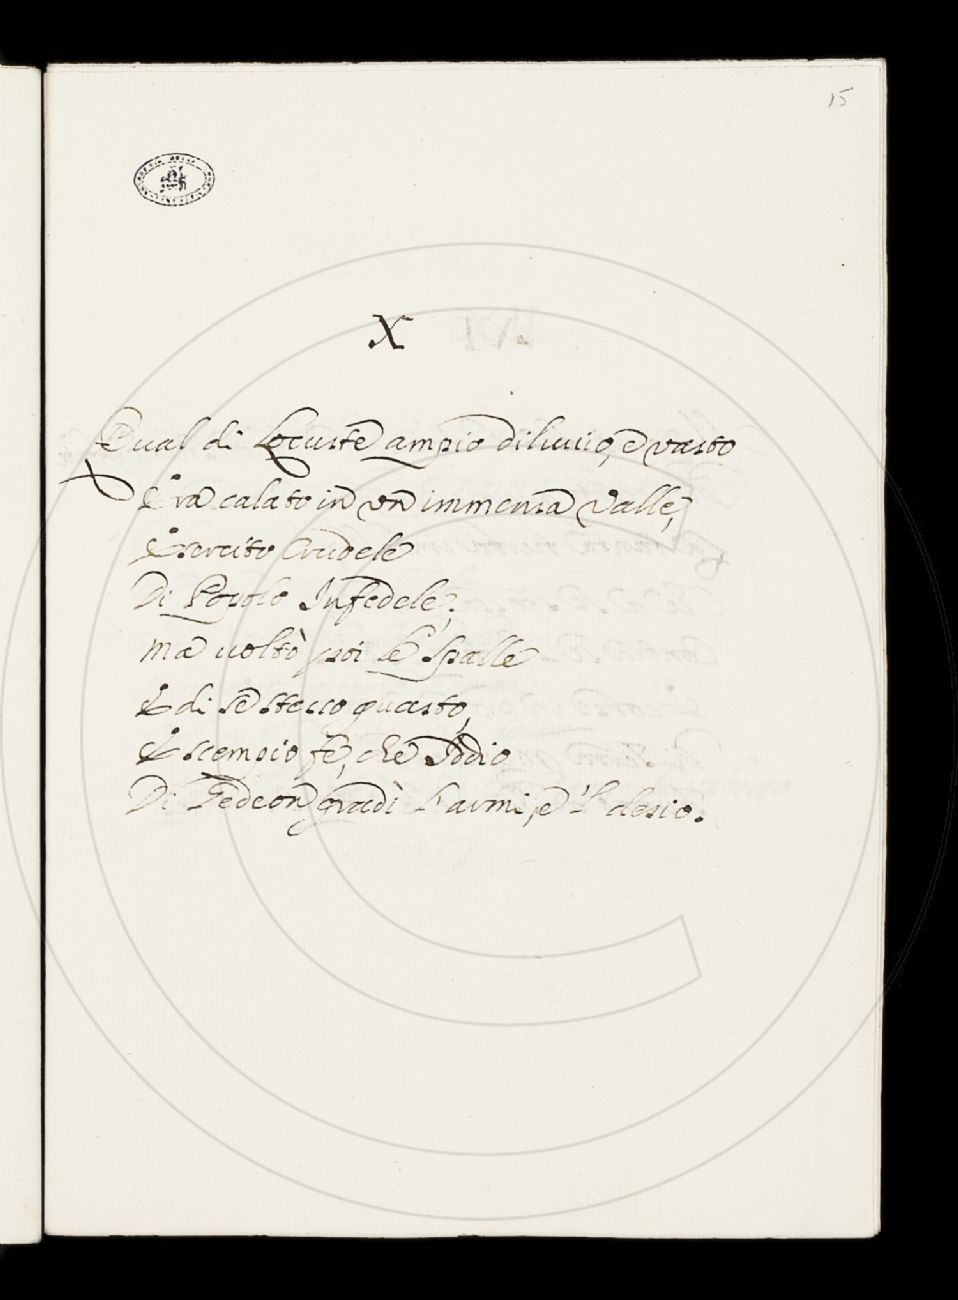 15
X
Qual di Locuste ampio diluuio, e vasto
Era calato in vn immensa Valle,
Esercito Crudele
Di Popolo Infedele;
Ma voltò poi le Spalle
E di se stesso guasto,
E scempio fè, chè Iddio
Di Gedeon gradì l'armi, e 'l desio.